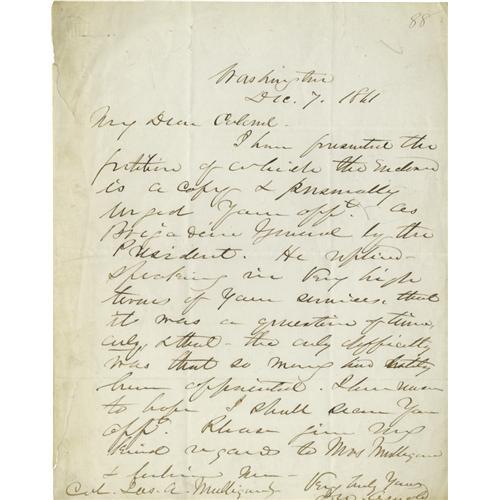 88
Washington
Dec. 7. 1861
My Dear Colonel.
I have presented the
petition of which the Enclosed
is a copy & personally
urged Your appt. as
Brigadier General by the
President. He replied-
speaking in Very high
terms of Your services, that
it was a question of time
only, & that the only difficulty
was that so many had
been appointed. I have reason
to hope I shall secure Your
appt. Please give my
kind regards to Mrs Mulligan
& believe me
Very truly Yours
Col. Jas. A. Mulligan